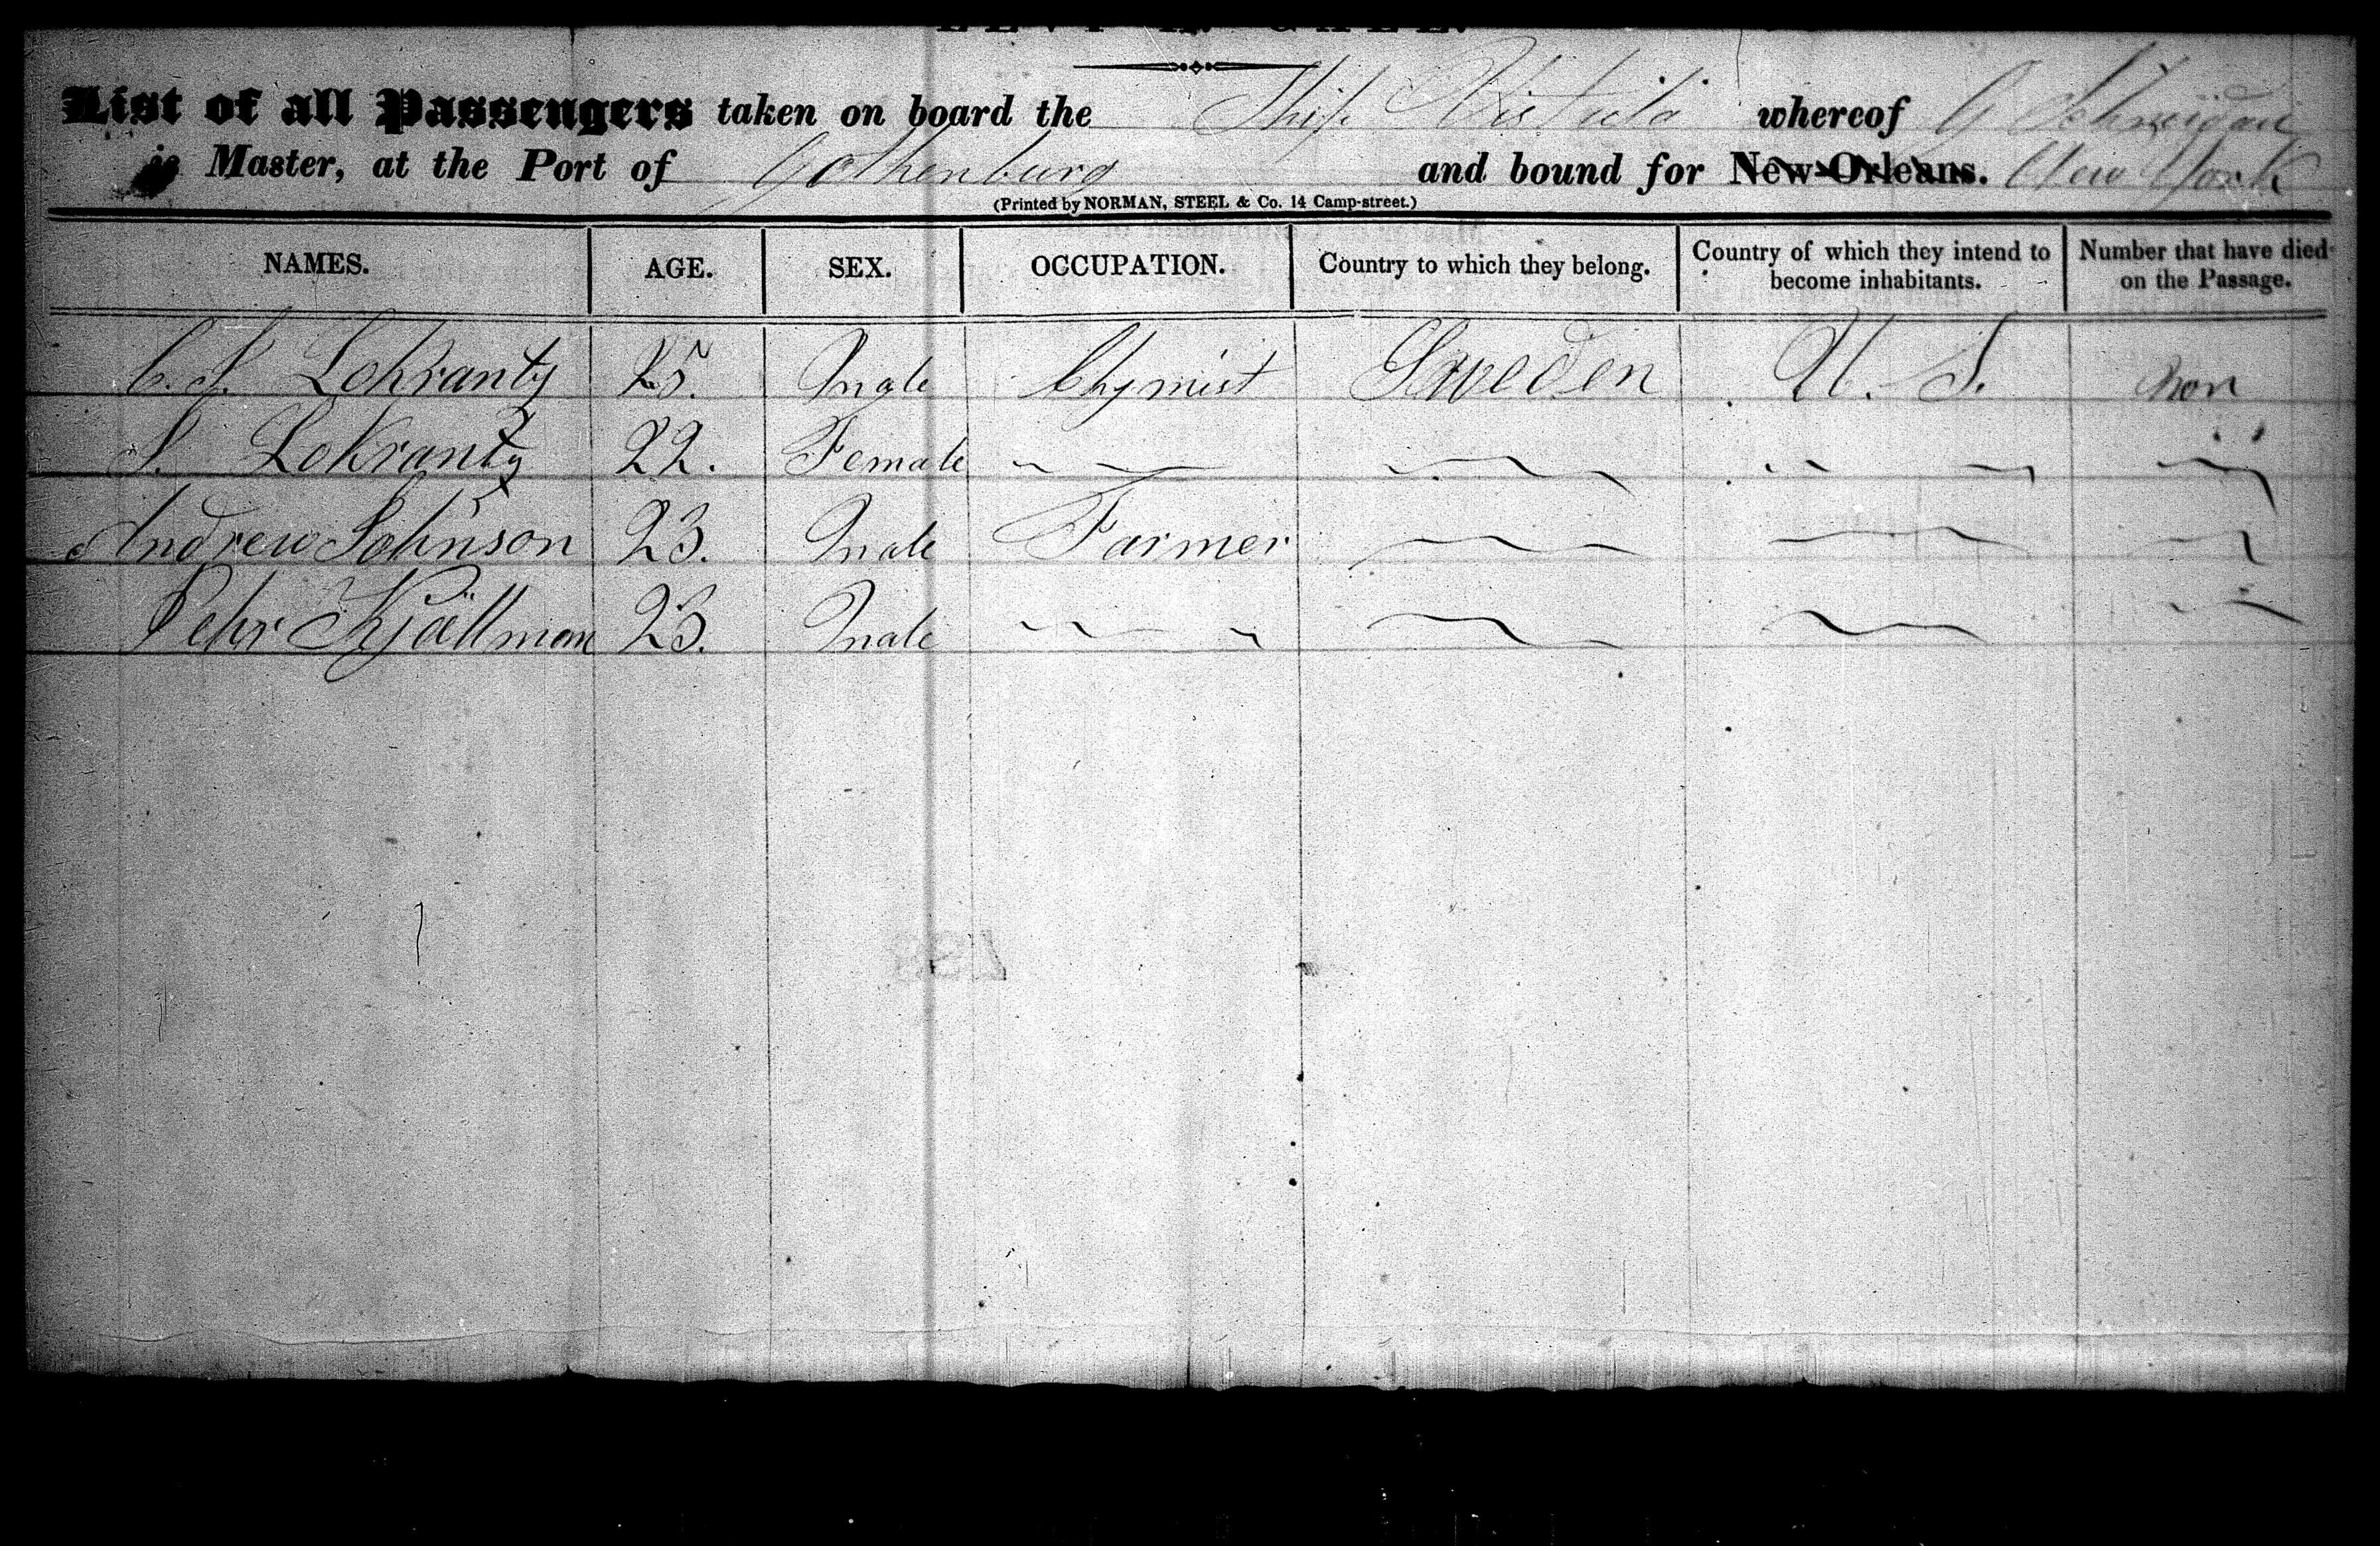 List of all Passengers taken on board the Ship Vistula whereof G Schneidau
is Master, at the Port of Gothenburg and bound for New-Orleans. New York
(Printed by NORMAN, STEEL & Co. 14 Camp-street.)
NAMES. AGE. SEX. OCCUPATION. Country to which they belong. Country of which they intend to become inhabitants. Number that have died on the Passage.
C. S. Lokrantz 25. Male Chymist Sweden U. S. Non
S. Lokrantz 22. Female
Andrew Johnson 23. Male Farmer
Pehr Kjällman 23. Male